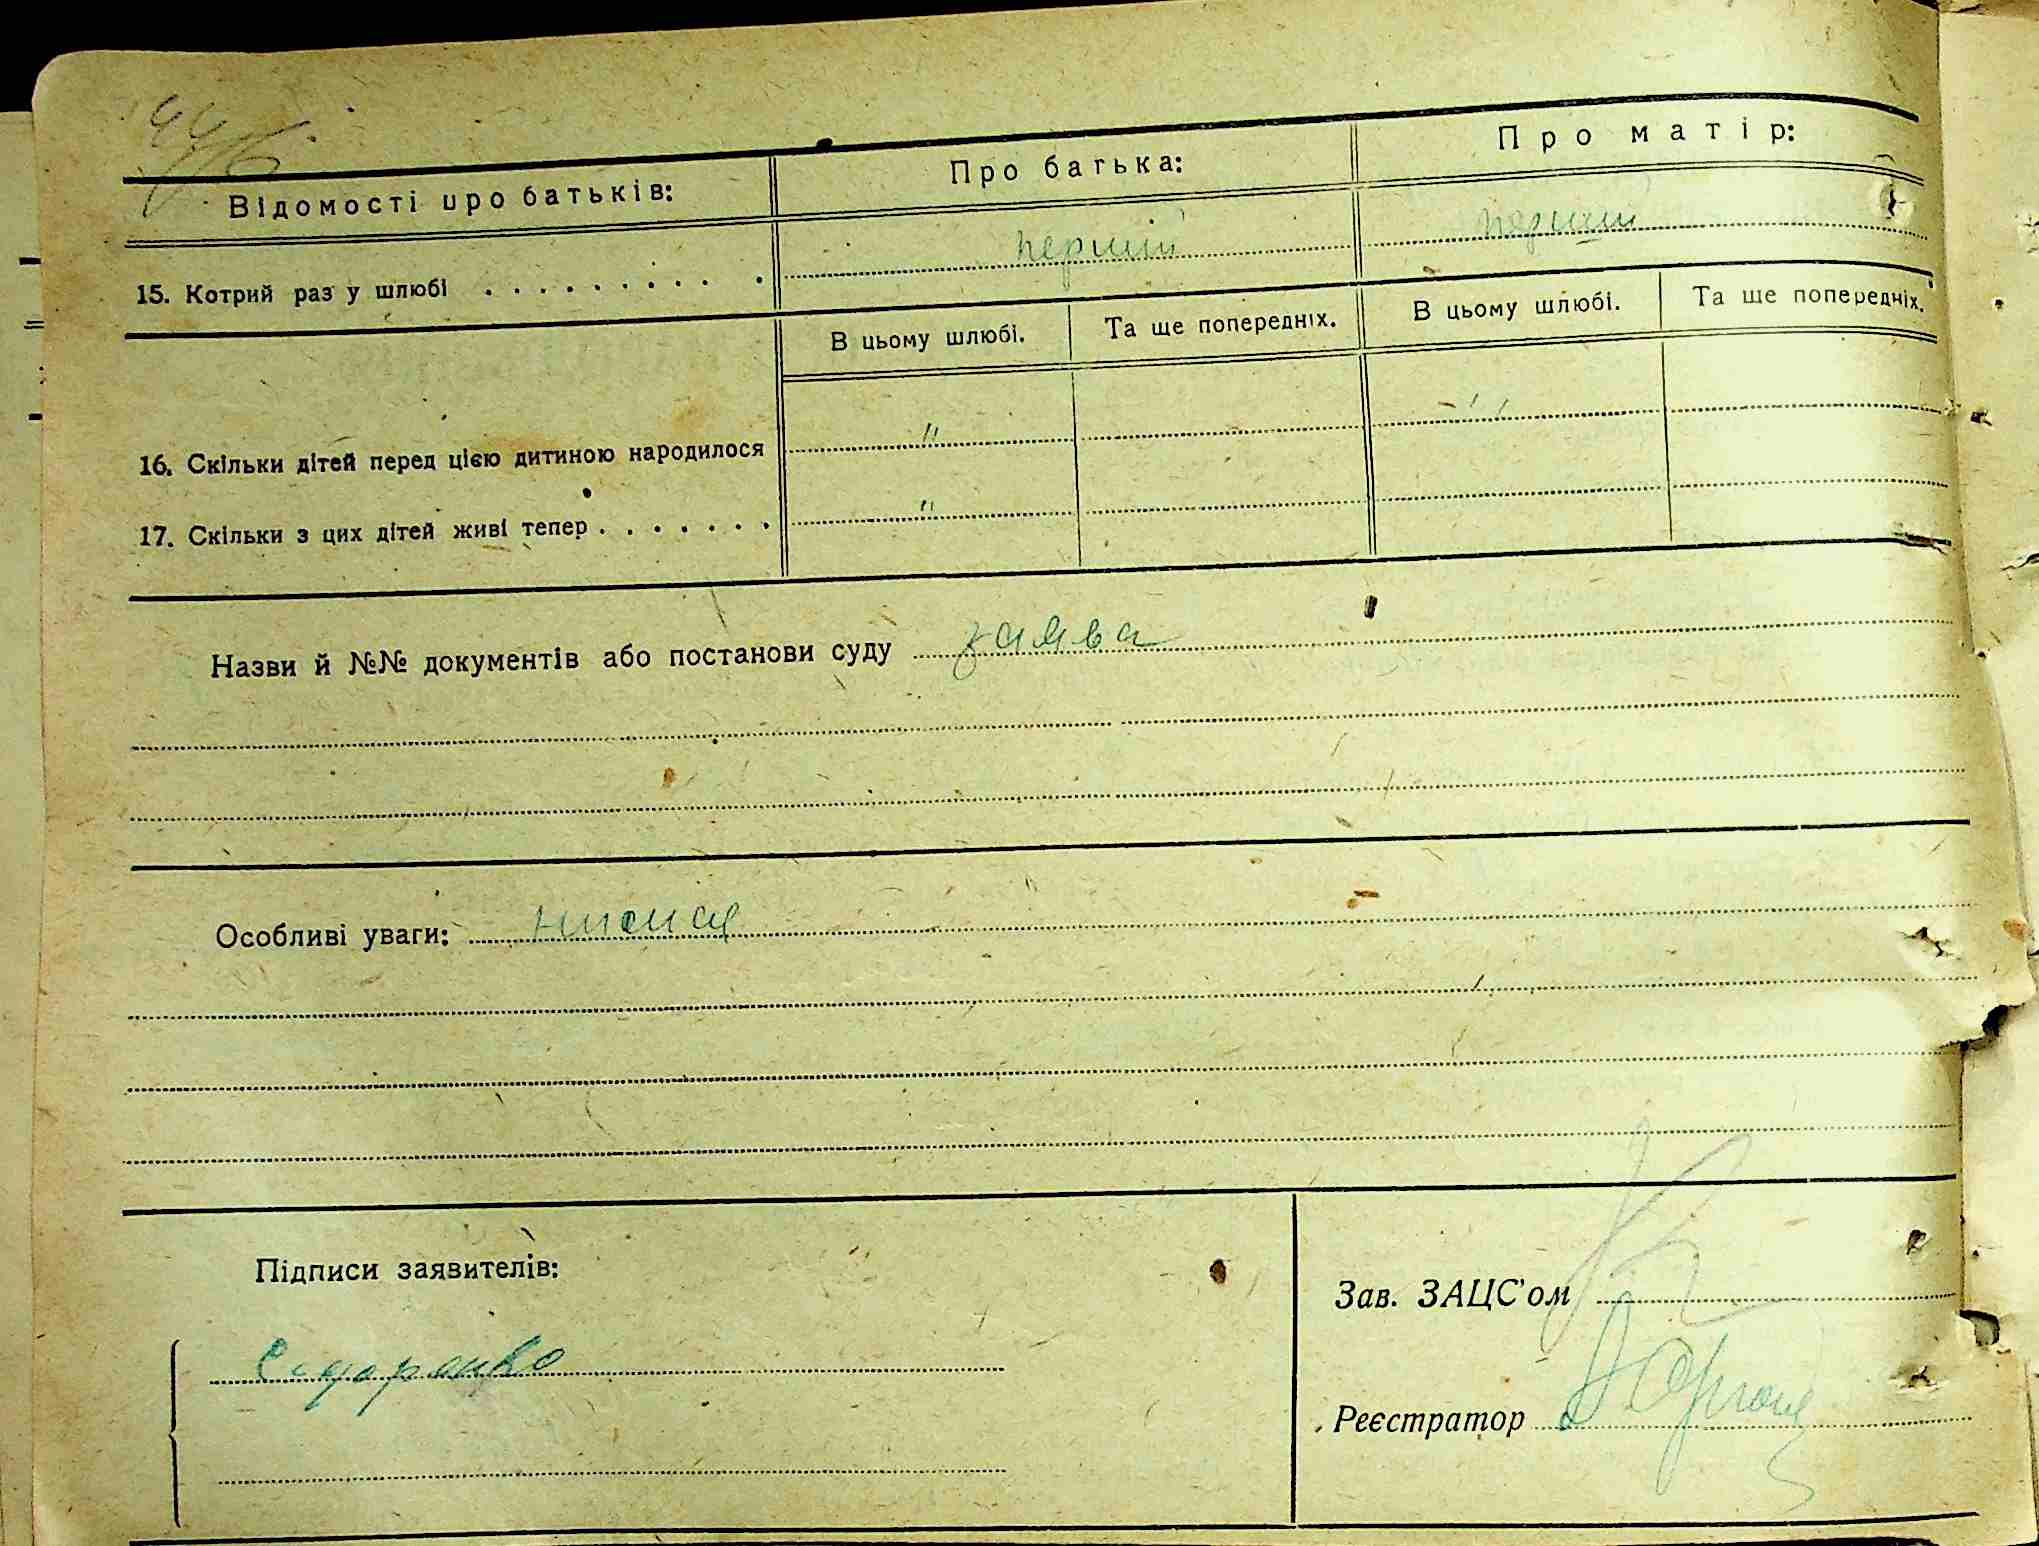 Відомості про батьків: Про батька: Про матір:
15. Котрий раз у шлюбі . . . . . . . . . . перший перший
В цьому шлюбі. Та ще попередніх. В цьому шлюбі. Та ще попередніх.
16. Скільки дітей перед цією дитиною народилося " "
17. Скільки з цих дітей живі тепер . . . . . . . "
Назви й №№ документів або постанови суду заява
Особливі уваги:
Підписи заявителів:
Сидоренко
Зав. ЗАЦС'ом
Реєстратор